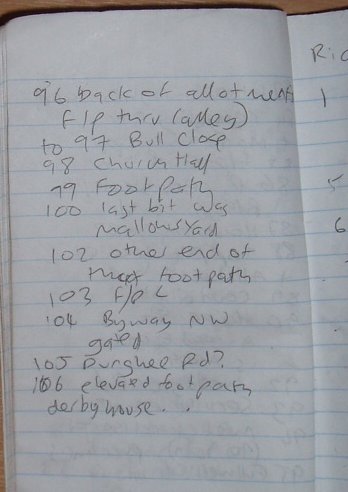 96 back of allotment
F/p thru (alley)
to 97 Bull Close
98 Church Hall
99 Footpath
100 last bit was
mallows yard
102 other end of
that footpath
103 F/p L
104 Byway NW
gated
105 Rd?
106 elevated footpath
derby house . .
Ric
1
5
6